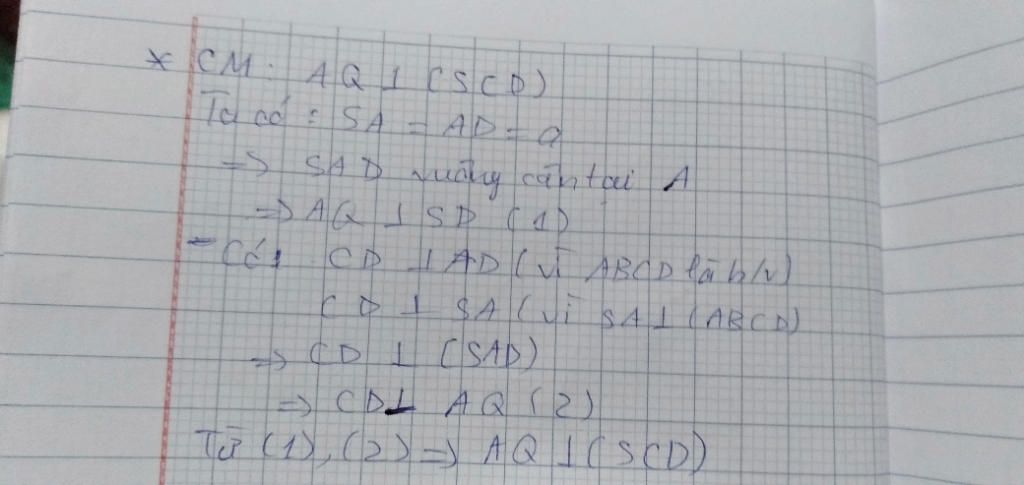 * CM: AQ ⊥ (SCD)
Ta có: SA = AD = a
=> SAD vuông cân tại A
=> AQ ⊥ SD (1)
- Có: CD ⊥ AD (vì ABCD là h/v)
CD ⊥ SA (vì SA ⊥ (ABCD)
=> CD ⊥ (SAD)
=> CD ⊥ AQ (2)
Từ (1), (2) => AQ ⊥ (SCD)